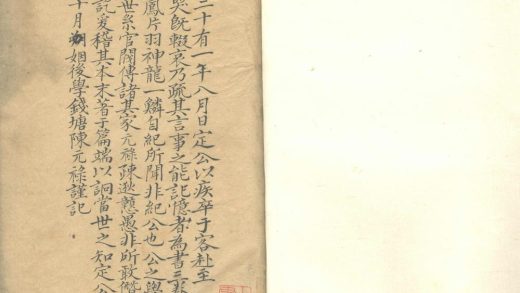 二十有一年八月日定公以疾卒于客赴至
哭旣輟哀乃疏其言事之能記憶者為書三
鳳片羽神龍一鱗自紀所聞非紀公也公之與
世系官閥傳諸其家元祿疎逖戇愚非所敢僭
託爰稽其本末著于篇端以詞當世之知定公
十月朔姻後學錢塘陳元祿謹記